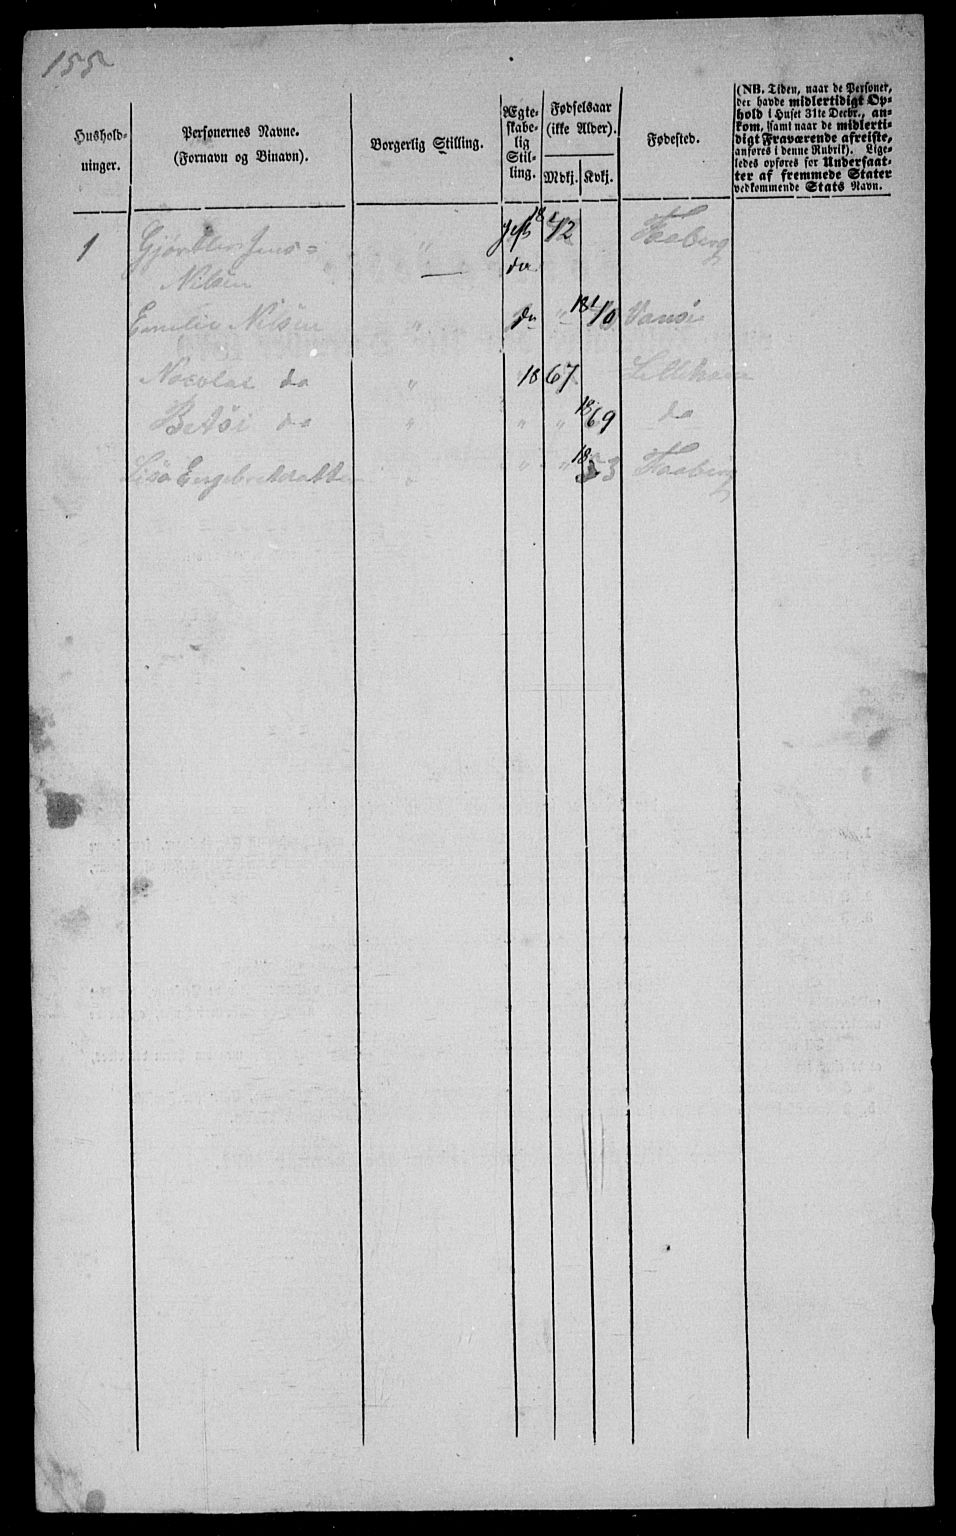 155
Hushold-
ninger.
Personernes Navne.
(Fornavn og Binavn).
Borgerlig Stilling.
Ægte-
skabe-
lig
Stil-
ling.
Fødselsaar
(ikke Alder).
Mdkj. Kvkj.
Fødested.
(NB. Tiden, naar de Personer,
der havde midlertidigt Op-
hold i Huset 31te Decbr., an-
kom, samt naar de midlerti-
digt Fraværende afreiste,
anføres i denne Rubrik). Lige-
ledes opføres for Undersaat-
ter af fremmede Stater
vedkommende Stats Navn.
1 Gjørtler Jens " gift 1842 Faaberg
Nilsen — do
Emelie Nilsen " do " 1840 Vansø
Nicolai do " 1867
Betsi do " " " 1869 do
Lisa " " " 1853 Faaberg